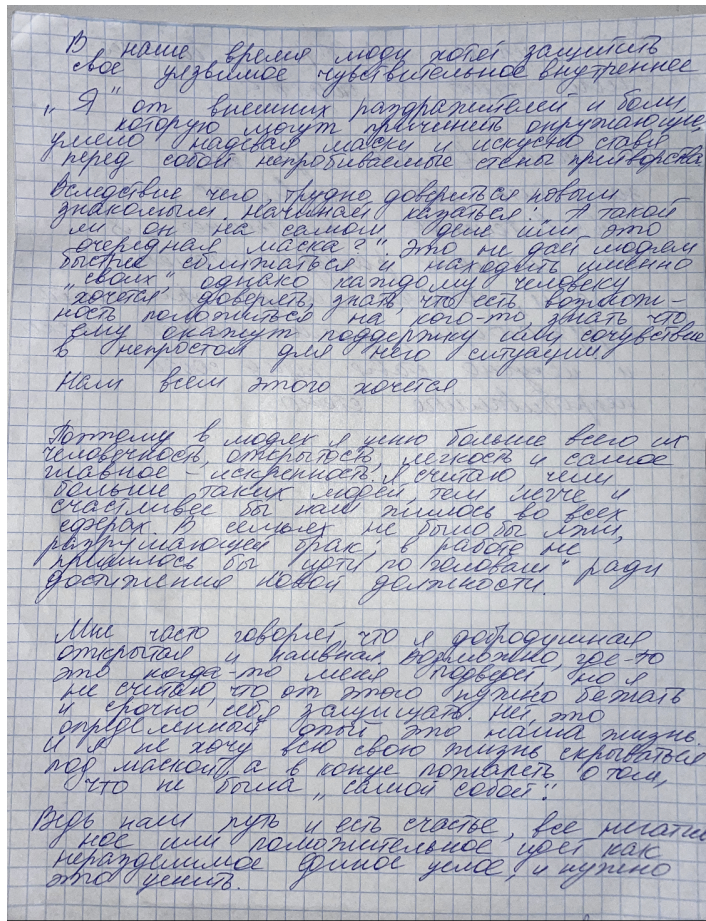 В наше время люди хотят защитить
свое уязвимое чувствительное внутреннее
„Я" от внешних раздражителей и боли,
которую могут причинить окружающие,
умело надевая маски и искусно ставя
перед собой непробиваемые стены притворства
Вследствие чего, трудно довериться новым
знакомым. Начинает казаться: „А такой
ли он на самом деле или это
очередная маска?" Это не дает людям
быстрее сближаться и находить именно
„своих", однако каждому человеку
хочется доверять, знать, что есть возмож-
ность положиться на кого-то, знать что
ему окажут поддержку или сочувствие
в непростой для него ситуации.
Нам всем этого хочется
Поэтому в людях я ценю больше всего их
человечность, открытость, легкость и самое
главное - искренность. Я считаю, чем
больше таких людей, тем легче и
счастливее бы нам жилось во всех
сферах. В семьях не было бы лжи,
разрушающей брак, в работе не
пришлось бы „идти по головам" ради
достижения новой должности.
Мне часто говорят, что я добродушная
открытая и наивная. Возможно, где-то
это когда-то меня подведет, но я
не считаю, что от этого нужно бежать
и срочно себя защищать. Нет, это
определенный опыт это наша жизнь.
И я не хочу всю свою жизнь скрываться
под маской, а в конце пожалеть о том,
что не была „самой собой".
Ведь наш путь и есть счастье, все негатив
ное или положительное идет как
неразделимое единое целое, и нужно
это ценить.